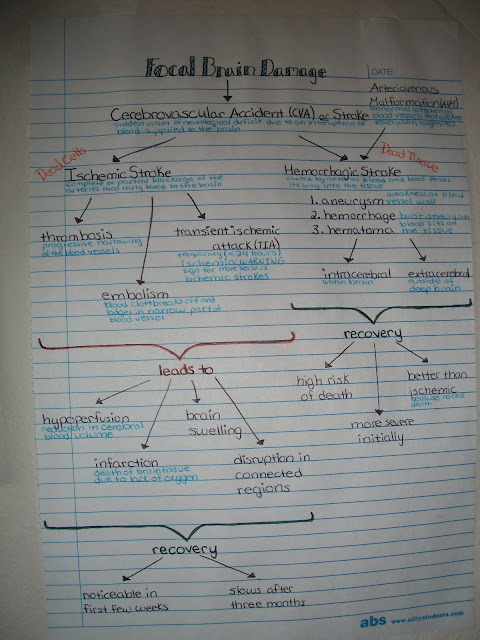 Focal Brain Damage
DATE:
Arteriovenous
Malformation (AVM)
blood vessels that
Cerebrovascular Accident (CVA) or Stroke
sudden onset of neurological deficit due to an interruption of
blood supplied to the brain
Dead Cells
Dead Tissue
Ischemic Stroke
complete or partial blockage of the
arteries that carry blood to the brain
Hemorrhagic Stroke
blood and
its way into the tissue
1. aneurysm weakness of blood
vessel wall
2. hemorrhage burst aneurysm
3. hematoma blood sits on
the tissue
thrombosis
progressive narrowing
of the blood vessels
transient ischemic
attack (TIA)
temporary (<24 hours)
ischemia WARNING
sign for more serious
ischemic strokes
embolism
blood clot breaks off and
lodges in narrow part of
blood vessel
intracerebral
within brain
extracerebral
outside of
deep brain
recovery
high risk
of death
better than
ischemic
because no cell
death
more severe
initially
leads to
hypoperfusion
reduction in cerebral
blood volume
brain
swelling
infarction
death of brain tissue
due to lack of oxygen
disruption in
connected
regions
recovery
noticeable in
first few weeks
slows after
three months
abs www.allforstudents.com